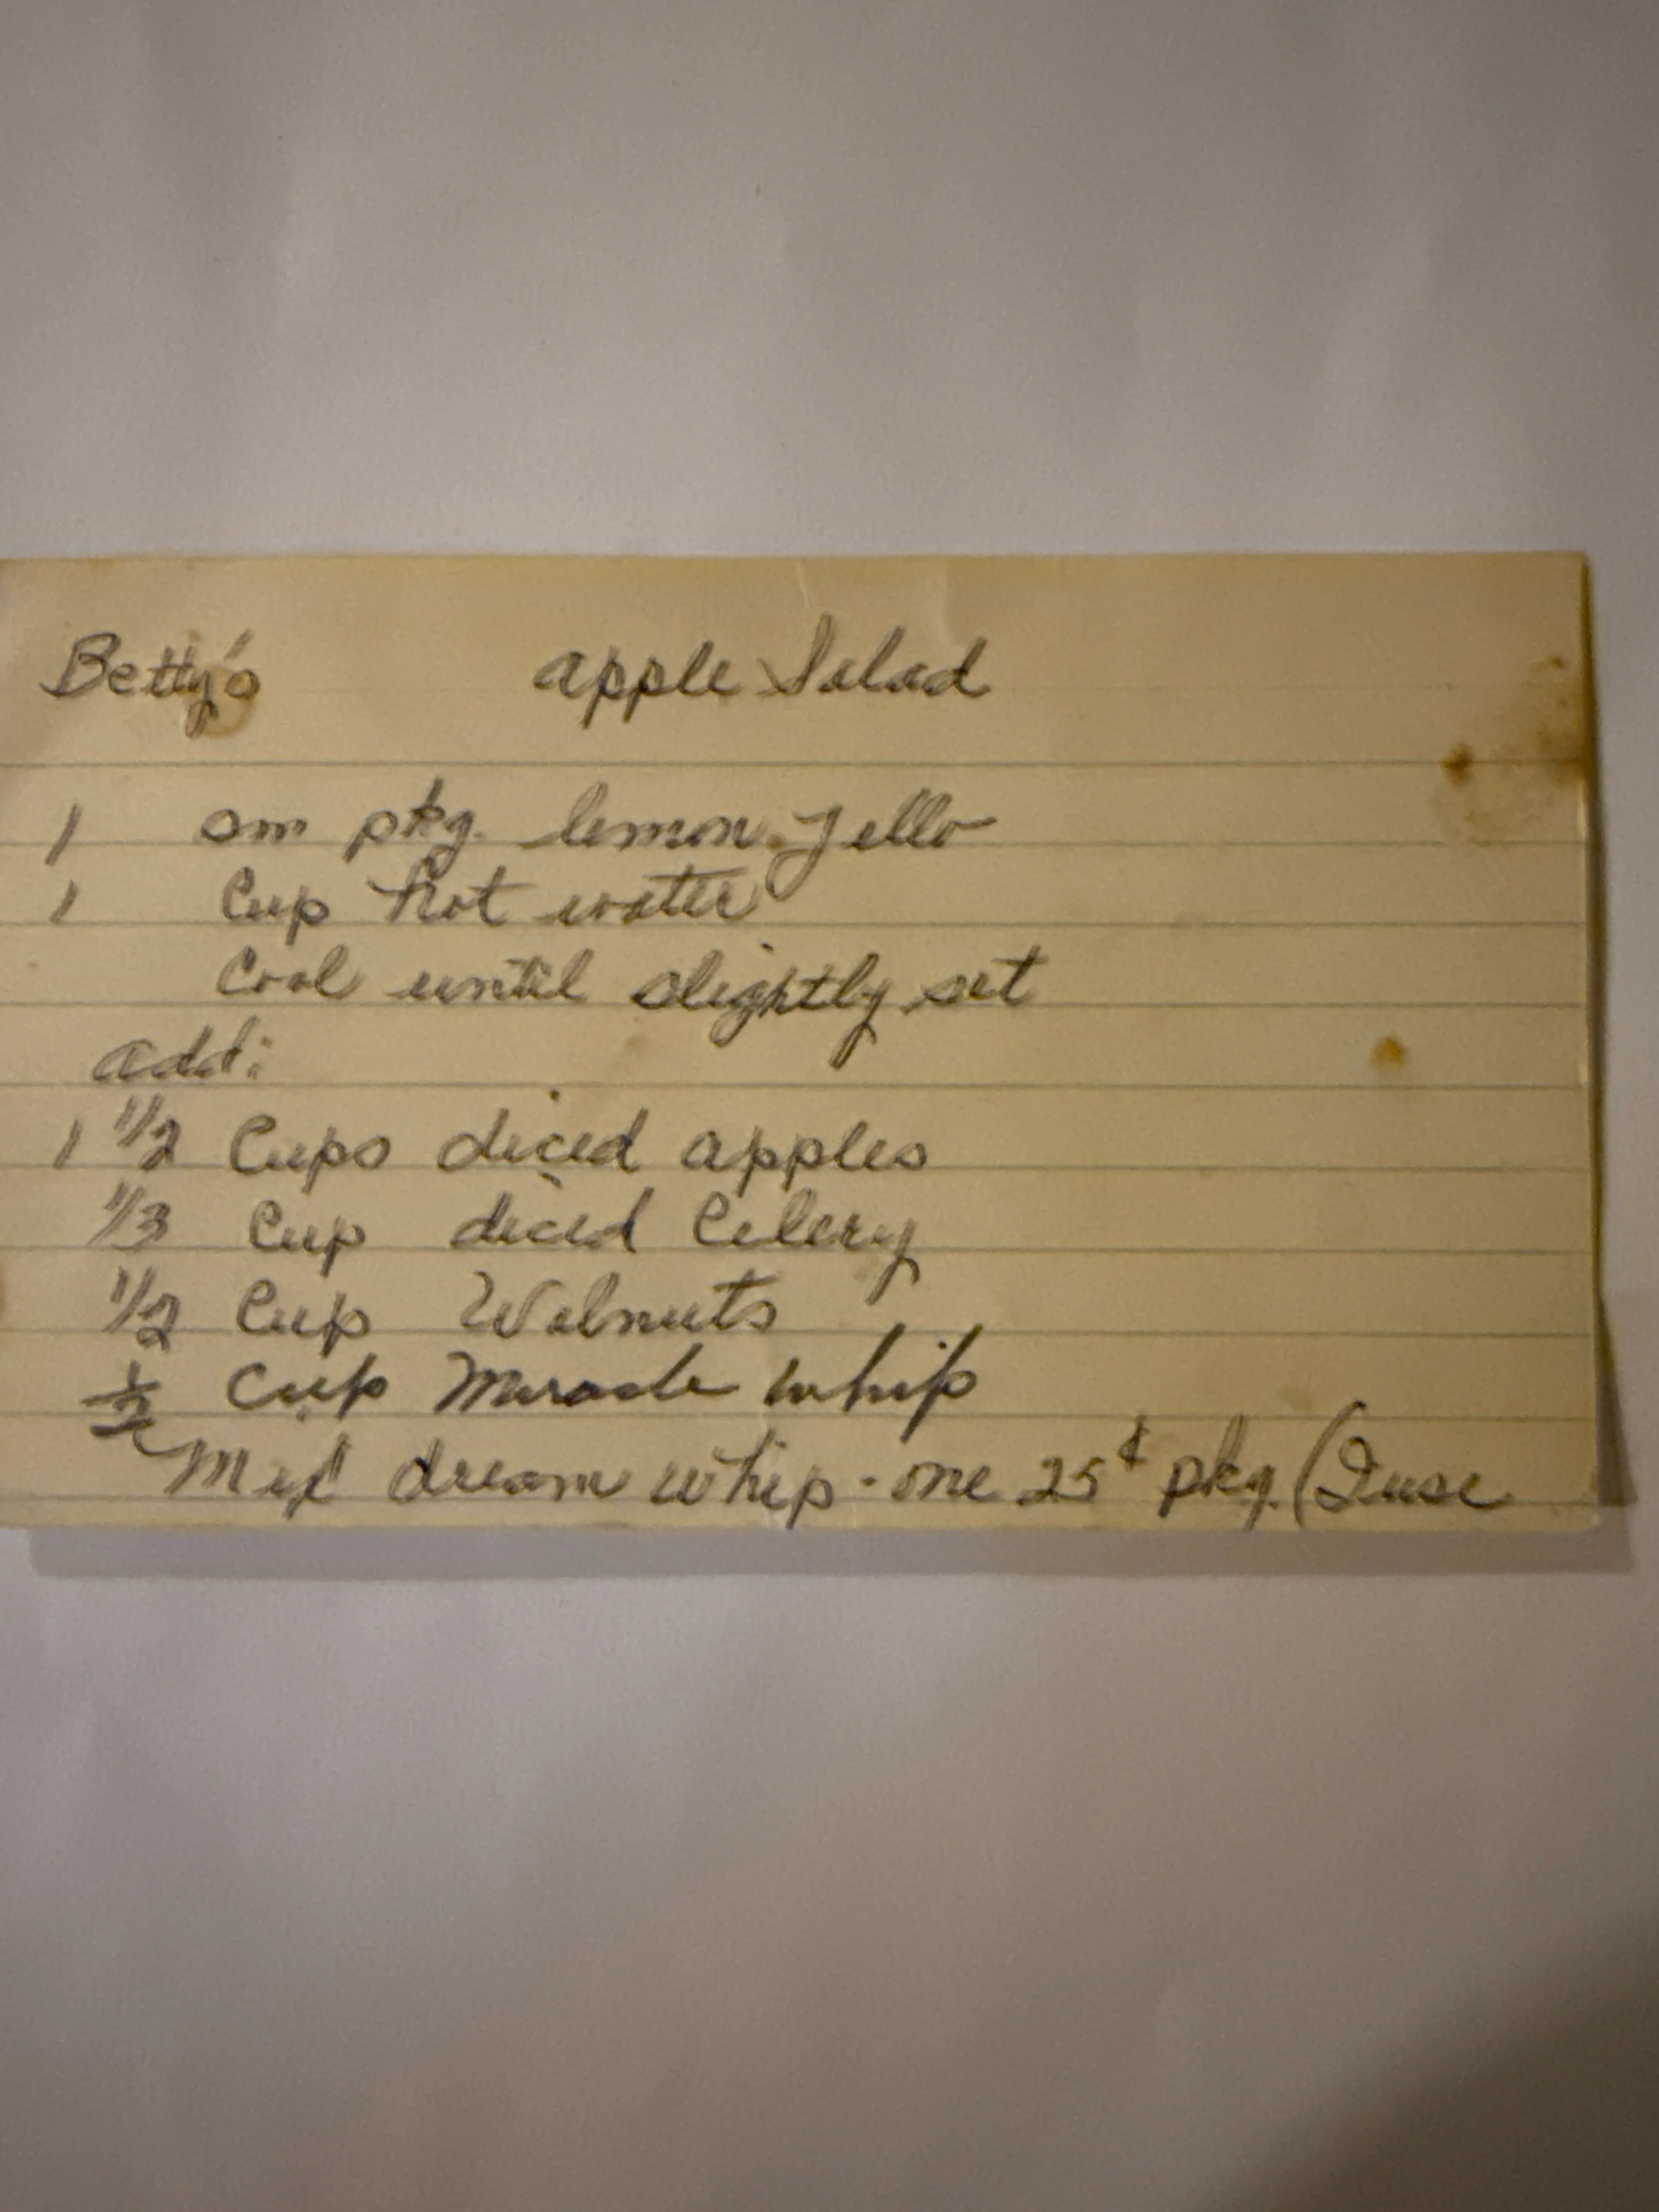 Betty's apple Salad
1 sm pkg. lemon Jello
1 Cup hot water
Cool until slightly set
add:
1 1/2 Cups diced apples
1/3 Cup diced Celery
1/2 Cup Walnuts
1/2 Cup Miracle whip
Mix dream whip - one 25¢ pkg. (I use